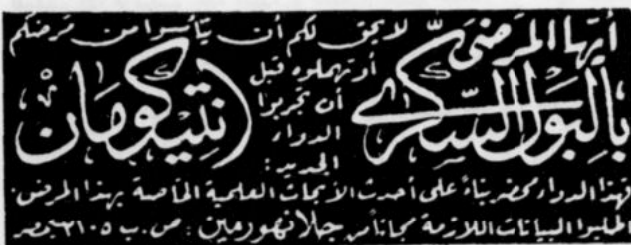 أيها المرضى
بالبول السكري
لا يحق لكم أن تيأسوا من مرضكم
أو تهملوه قبل
أن تجربوا
الدواء
الجديد :
انتيكومان
فهذا الدواء محضر بناءً على أحدث الأبحاث العلمية الخاصة بهذا المرض .
اطلبوا البيانات اللازمة مجاناً من جلانهورمين : ص . ب ٢١٠٥ بمصر